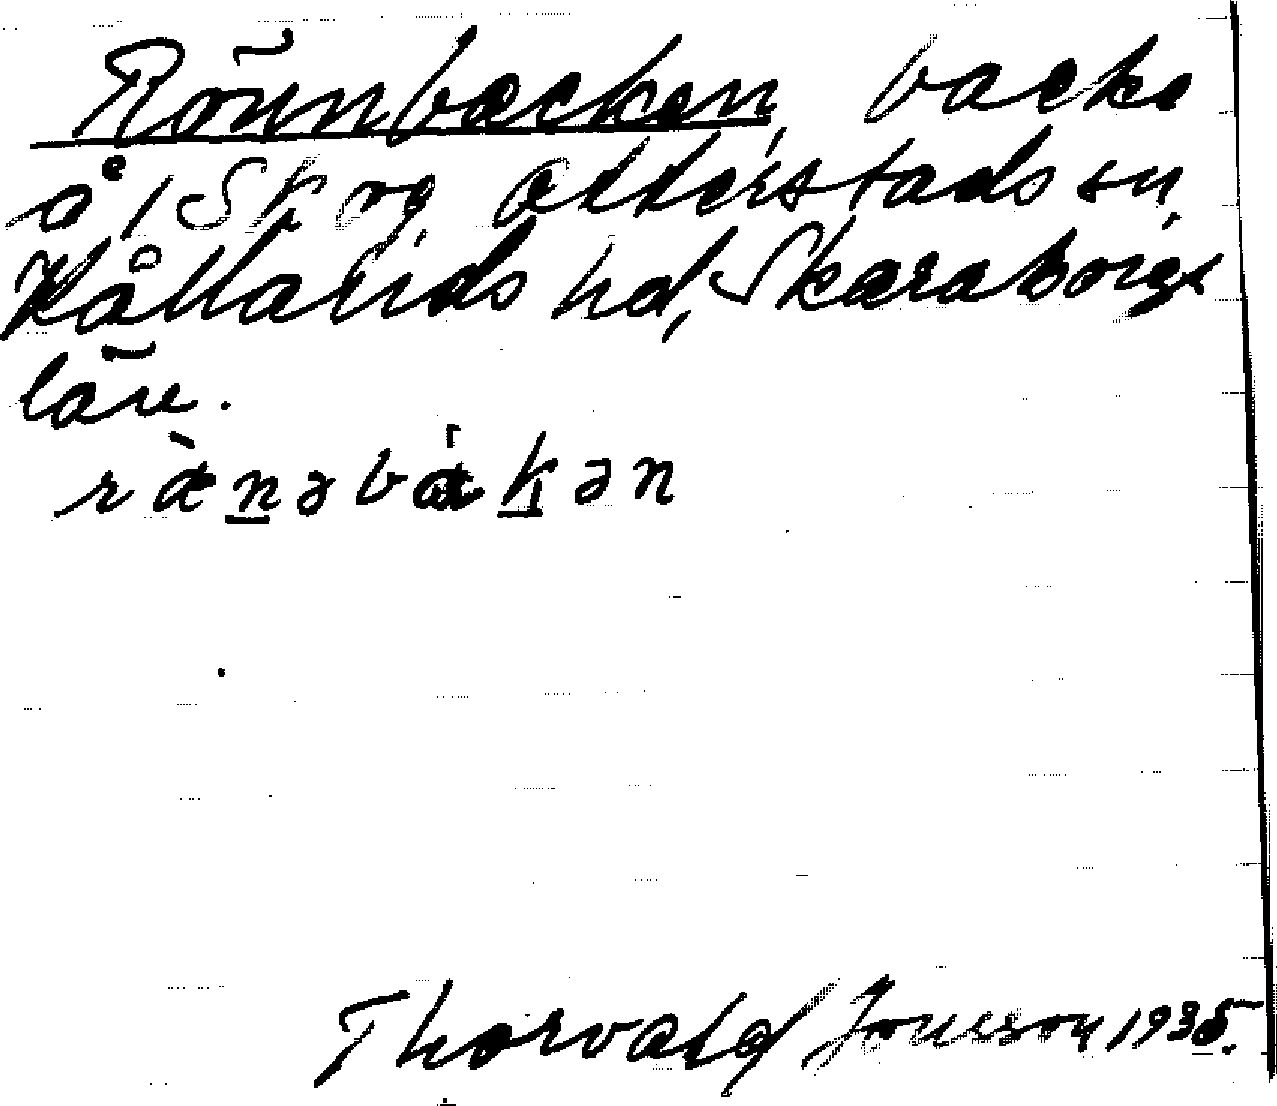 Rönnbacken, backe
å 1 Skog, Otterstads sn,
Kållands hd, Skaraborgs
län.
ræ̀nəbákən
Thorvald Jonsson 1935.